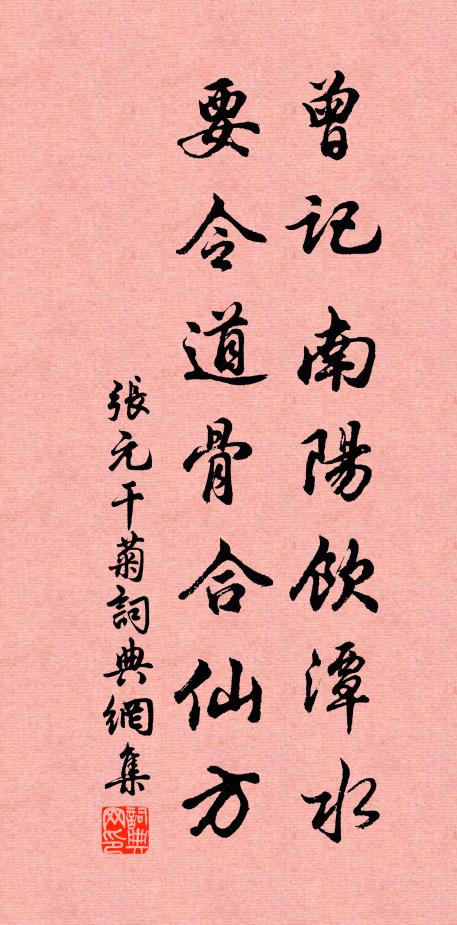 曾記南陽飲潭水
要令道骨合仙方
張元干菊詞典網集
詞典网印